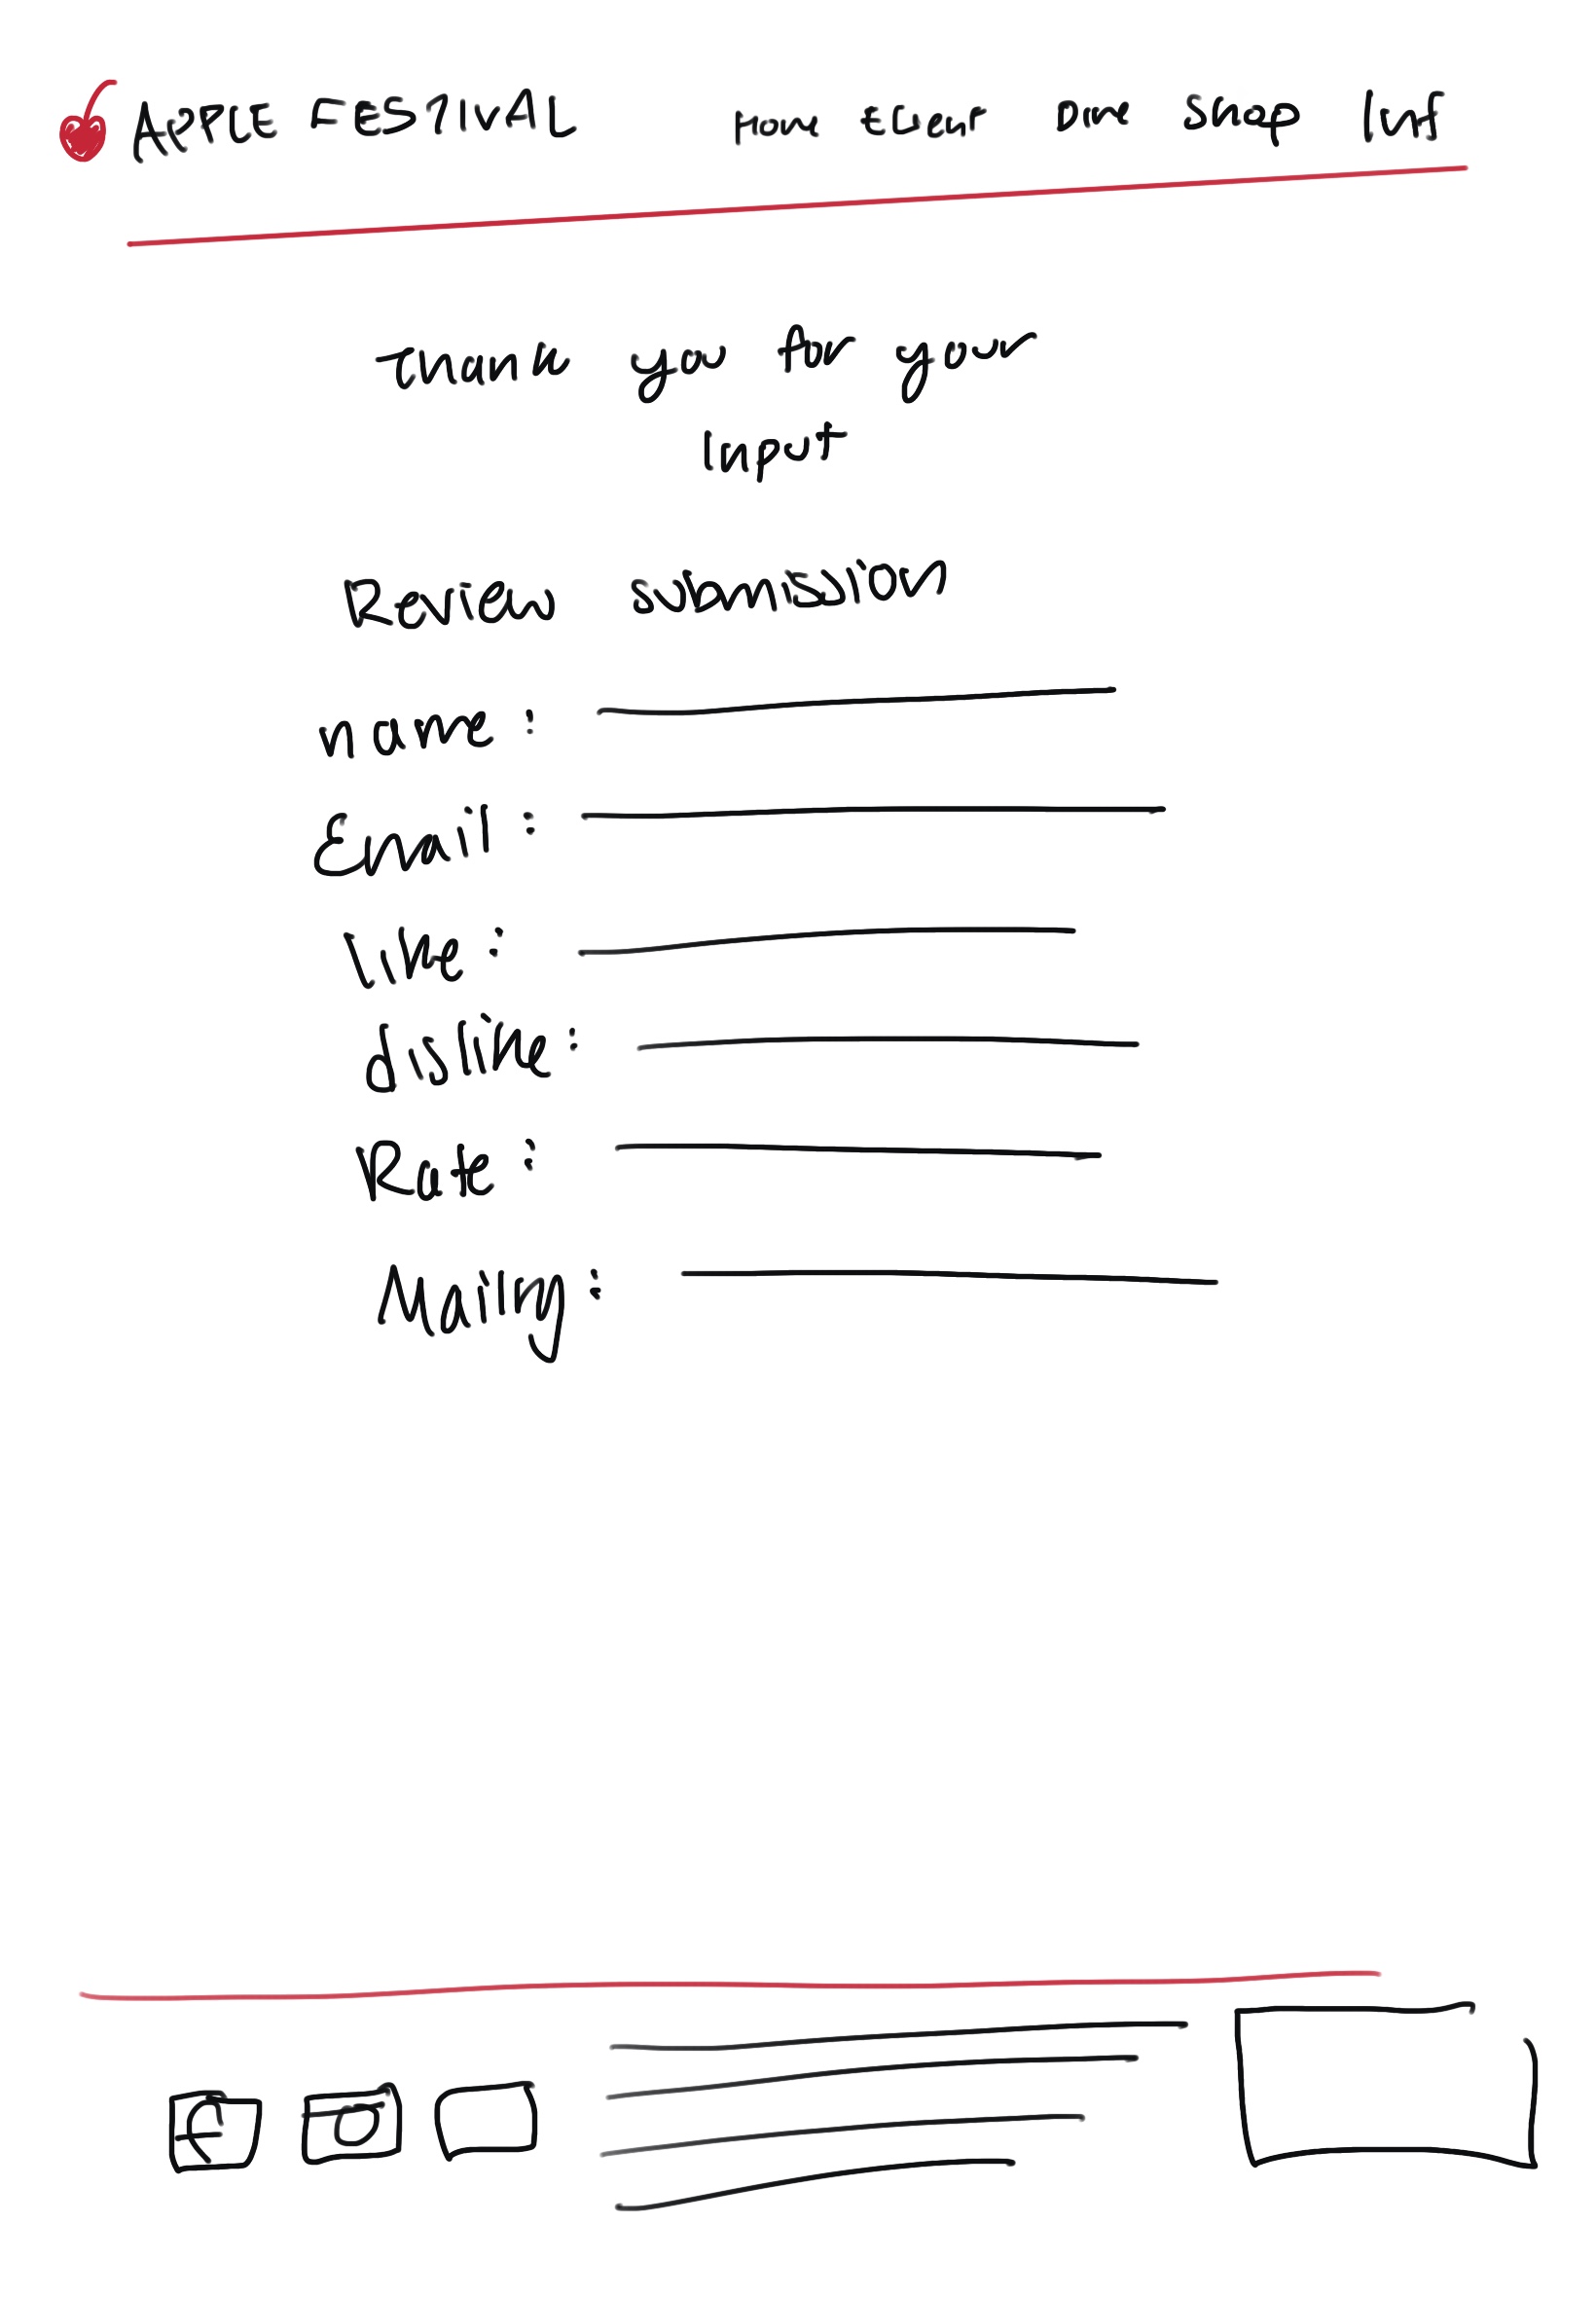 APPLE FESTIVAL Home Event Dine Shop Inf
Thank you for your
Input
Review submission
name:
Email:
like:
dislike:
Rate:
Mailing:
f